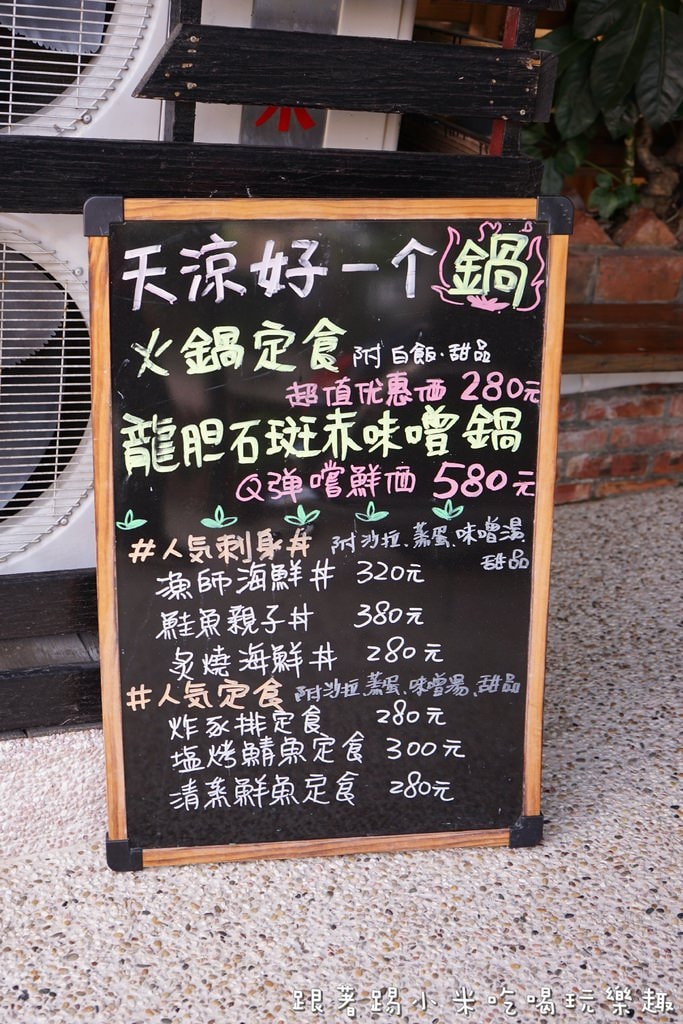 天涼好一个鍋
火鍋定食 附白飯.甜品
超值优惠価 280元
龍胆石斑赤味噌鍋
Q弹嚐鮮価 580元
#人気刺身丼 附沙拉、蒸蛋、味噌湯、
甜品
漁師海鮮丼 320元
鮭魚親子丼 380元
炙燒海鮮丼 280元
#人気定食 附沙拉、蒸蛋、味噌湯、甜品
炸豕排定食 280元
塩烤鯖魚定食 300元
清蒸鮮魚定食 280元
跟著踢小米吃喝玩樂趣